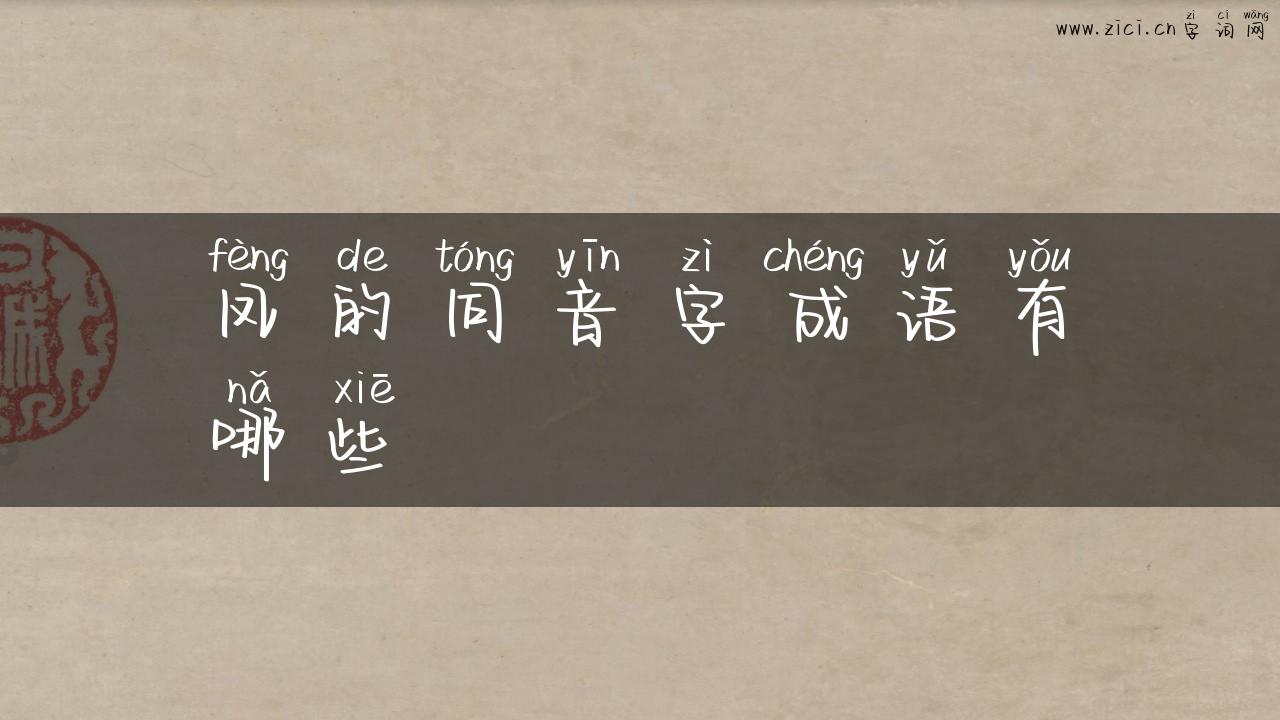 zì cí wǎng
www.zici.cn 字词网
fèng de tóng yīn zì chéng yǔ yǒu
凤的同音字成语有
nǎ xiē
哪些